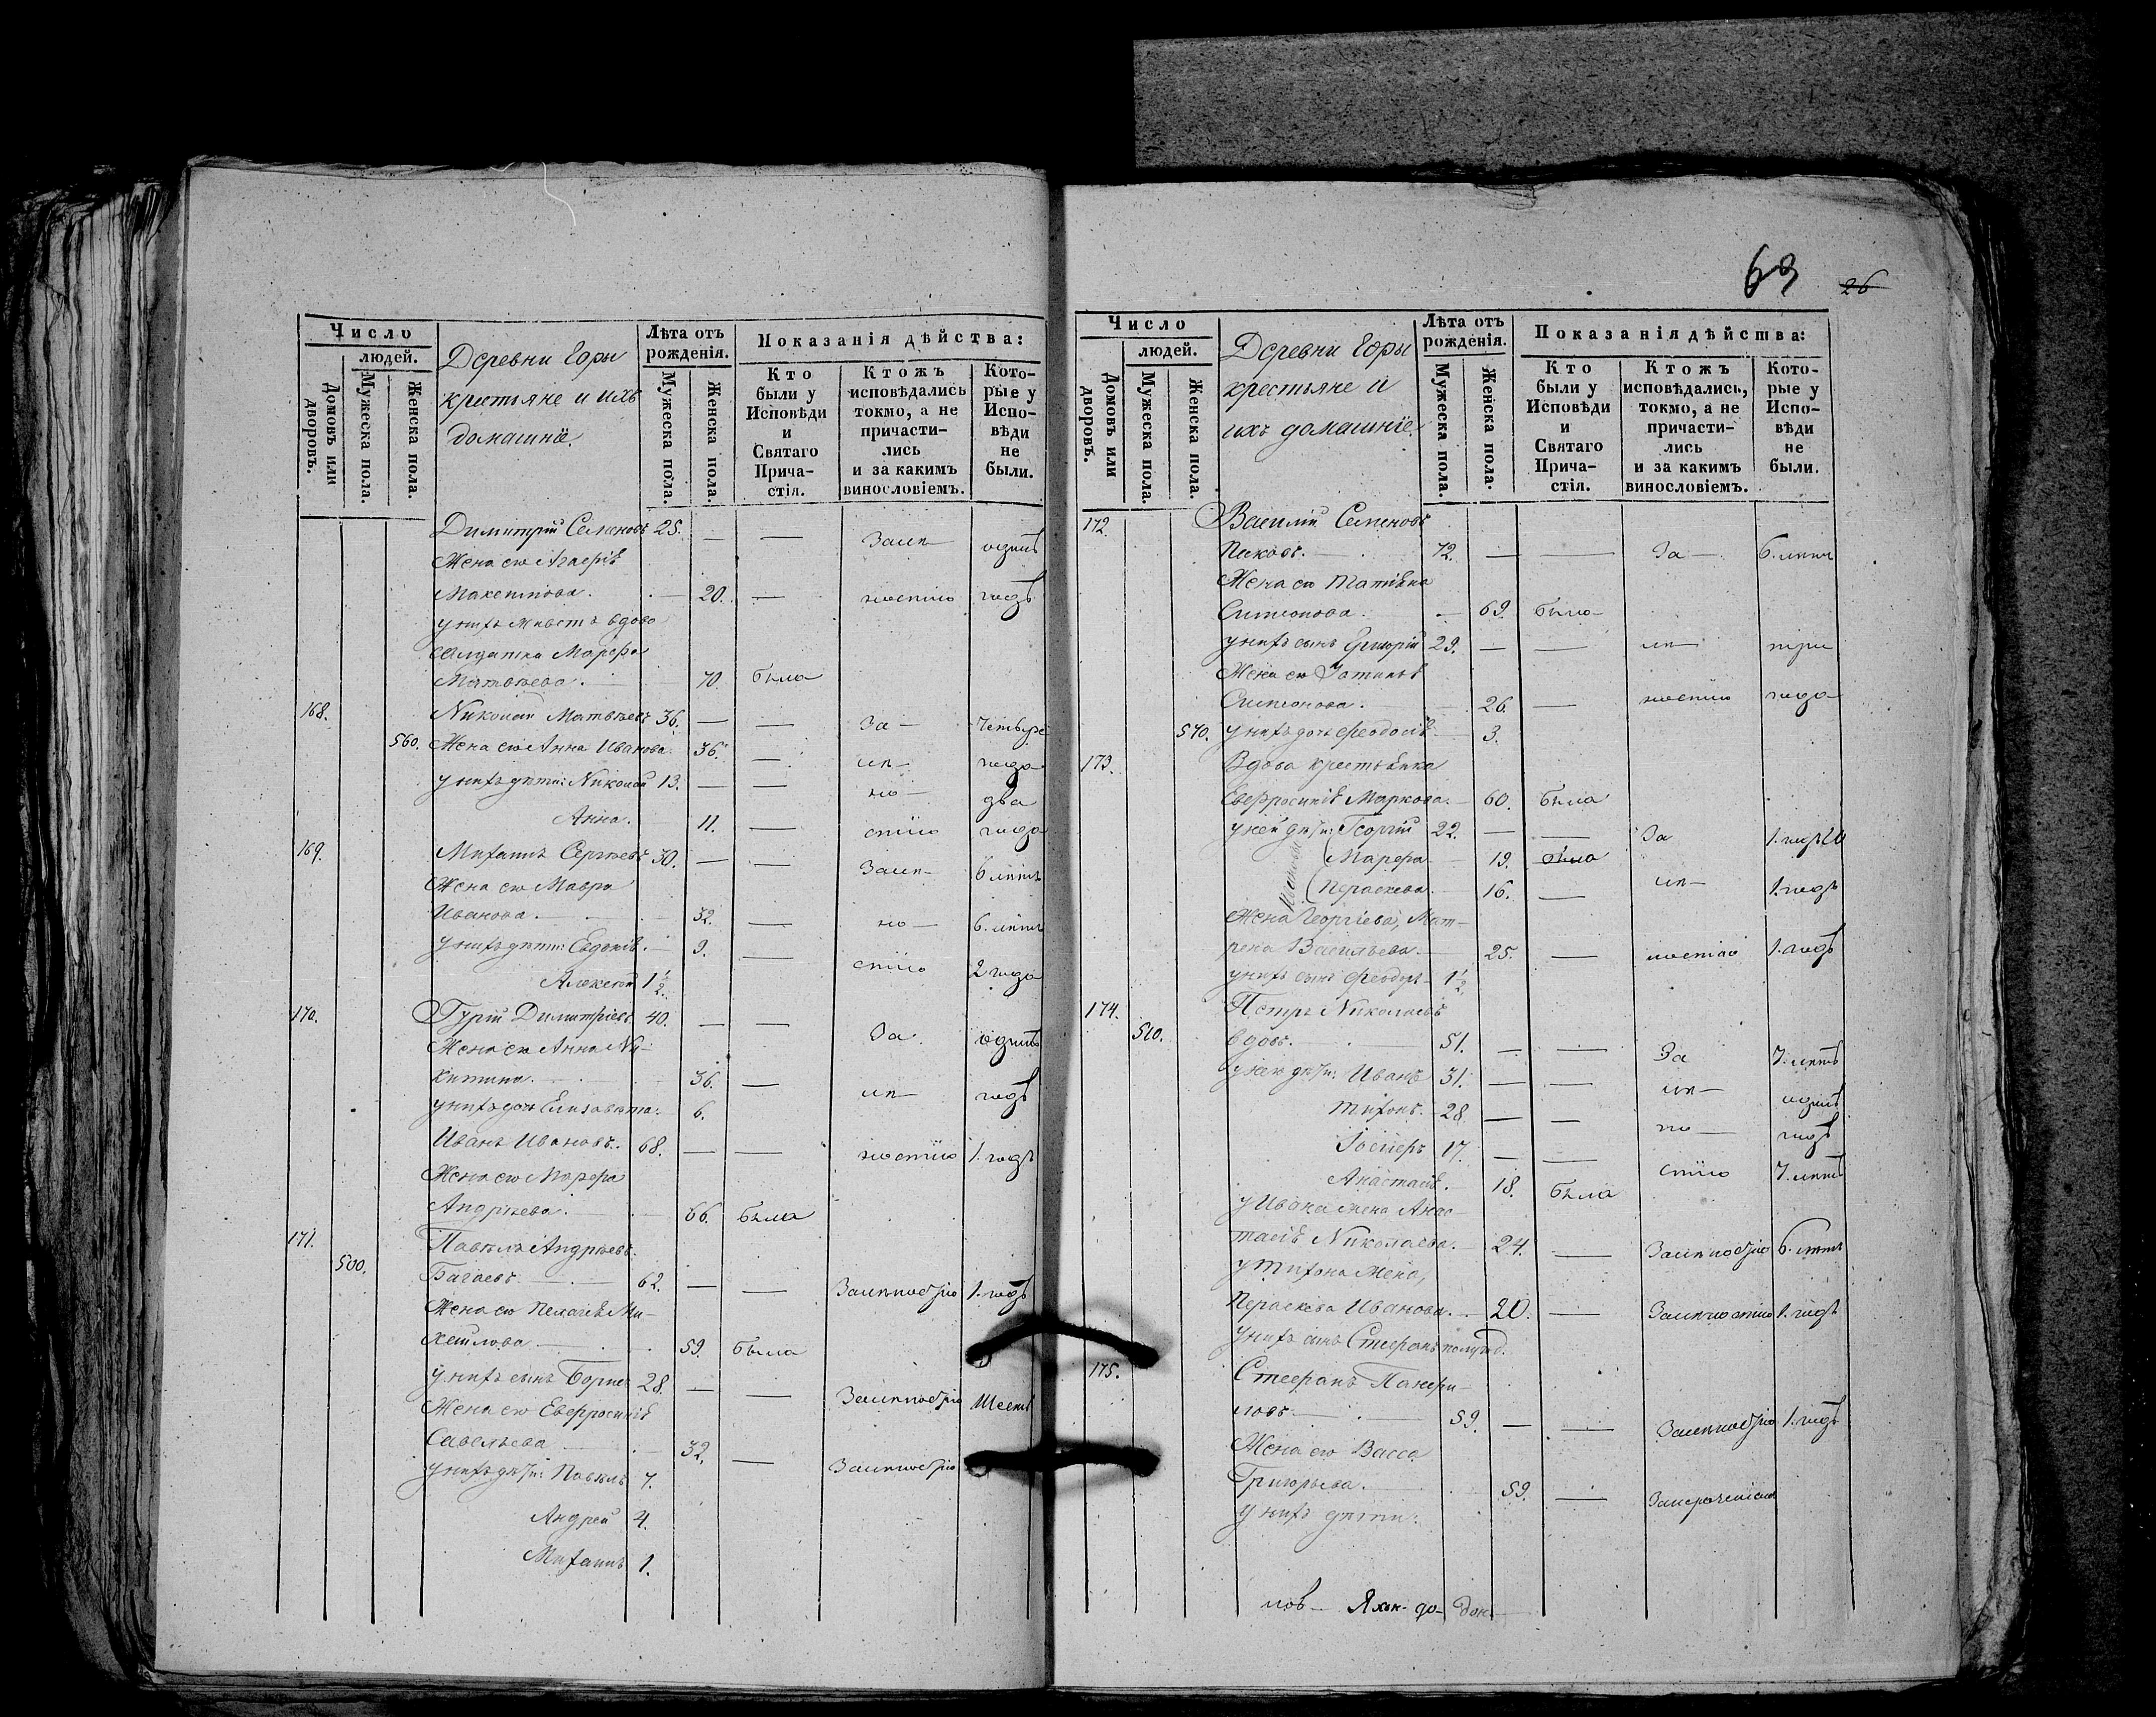 Число
людей.
Домовъ или дворовъ.
Мужеска пола.
Женска пола.
Деревни Горы
крестьяне и ихъ
домашніе.
Лѣта отъ рожденія.
Мужеска пола.
Женска пола.
Показанія дѣйства:
Кто были у Исповѣди и Святаго Прича-стія.
Ктожъ исповѣдались токмо, а не причасти-лись и за какимъ винословіемъ.
Кото-рые у Испо-вѣди не были.
Димитрій Семеновъ 25. — — Залѣ- одинъ
Жена его
20. — ностію годъ
у нихъ вдова
солдатка Марфа
Матвѣева. 70. была
168. Николай Матвѣевъ 36. — — За- четыре
560. Жена его Анна Иванова. 36. — лѣ- года
у нихъ дѣти: Николай 13. — — но- два
Анна. 11. — стію года
169. Михаилъ Сергѣевъ 30. — — Залѣ- 6 лѣтъ
Жена его Мавра
Иванова. 32. — но- 6. лѣтъ
у нихъ дѣти: Евдокія. 9. — стію 2 года
Алексѣй 1½.
170. Гурій Димитріевъ 40. — — За одинъ
Жена его Анна Ни-
китина. 36. — лѣ- годъ
у нихъ дочь Елизавета. 6.
Иванъ Ивановъ. 68. — — ностію 1. годъ
Жена его Марфа
Андреева. 66. была
171. Павелъ Андреевъ
500. 62. — — Залѣностію 1. годъ
Жена его Пелагія Ми-
хайлова 59. была
у нихъ сынъ Борисъ 28. — — Залѣностію Шесть
Жена его Евфросинія
Савельева 32. — Залѣностію
у нихъ дѣти: Павелъ 7.
Андрей 4.
Михаилъ 1.
69 26
Число
людей.
Домовъ или дворовъ.
Мужеска пола.
Женска пола.
Деревни Горы
крестьяне и
ихъ домашніе.
Лѣта отъ рожденія.
Мужеска пола.
Женска пола.
Показанія дѣйства:
Кто были у Исповѣди и Святаго Прича-стія.
Ктожъ исповѣдались, токмо, а не причасти-лись и за какимъ винословіемъ.
Кото-рые у Испо-вѣди не были.
172. Василій Семеновъ
72. — — За- 6. лѣтъ
Жена его Татіяна
Симеонова. 69. была
у нихъ сынъ Григорій 29. — — лѣ- три
Жена его
Симеонова. 26. — ностію года
570. у нихъ дочь Феодосія 3.
173. Вдова крестьянка
Евфросинія Маркова. 60. была
у ней дѣти: Георгій 22. — — За
Марфа 19. была
Параскева. 16. — лѣ- 1. годъ
Жена Георгіева, Мат-
рена Васильева. 25. — ностію 1. годъ
у нихъ сынъ Феодоръ 1½.
174. Петръ Николаевъ
510. вдовъ. 51. — — За 7. лѣтъ
у него дѣти: Иванъ 31. — — лѣ- одинъ
Тихонъ. 28. — — но- годъ
17. — — стію 7. лѣтъ
Анастасія. 18. была
у Ивана жена Анас-
тасія Николаева. 24. — Залѣностію 6. лѣтъ
у Тихона жена,
Параскева Иванова. 20. — Залѣностію 1. годъ
у нихъ сынъ Стефанъ полугод.
175. Стефанъ
59. — — Залѣностію 1. годъ
Жена его Васса
Григорьева. 59. —
у нихъ дѣти: